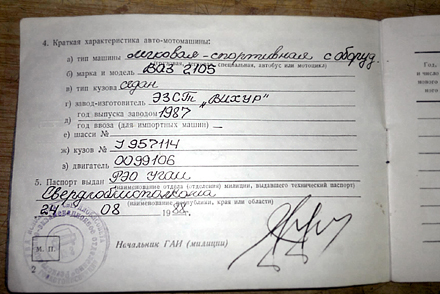 4. Краткая характеристика авто-мотомашины:
а) тип машины легковая-спортивная с оборуд.
(специальная, автобус или мотоцикл)
б) марка и модель ВАЗ 2105
в) тип кузова седан
г) завод-изготовитель ЭЗСТ „Вихур"
д) год выпуска заводом 1987
год ввоза (для импортных машин) —
е) шасси №
ж) кузов № 1957114
з) двигатель 0099106
5. Паспорт выдан РЭО УГАИ
(наименование отдела (отделения) милиции, выдавшего технический паспорт)
(наименование республики, края или области)
24 08 1988
М. П.
Начальник ГАИ (милиции)
2
Год,